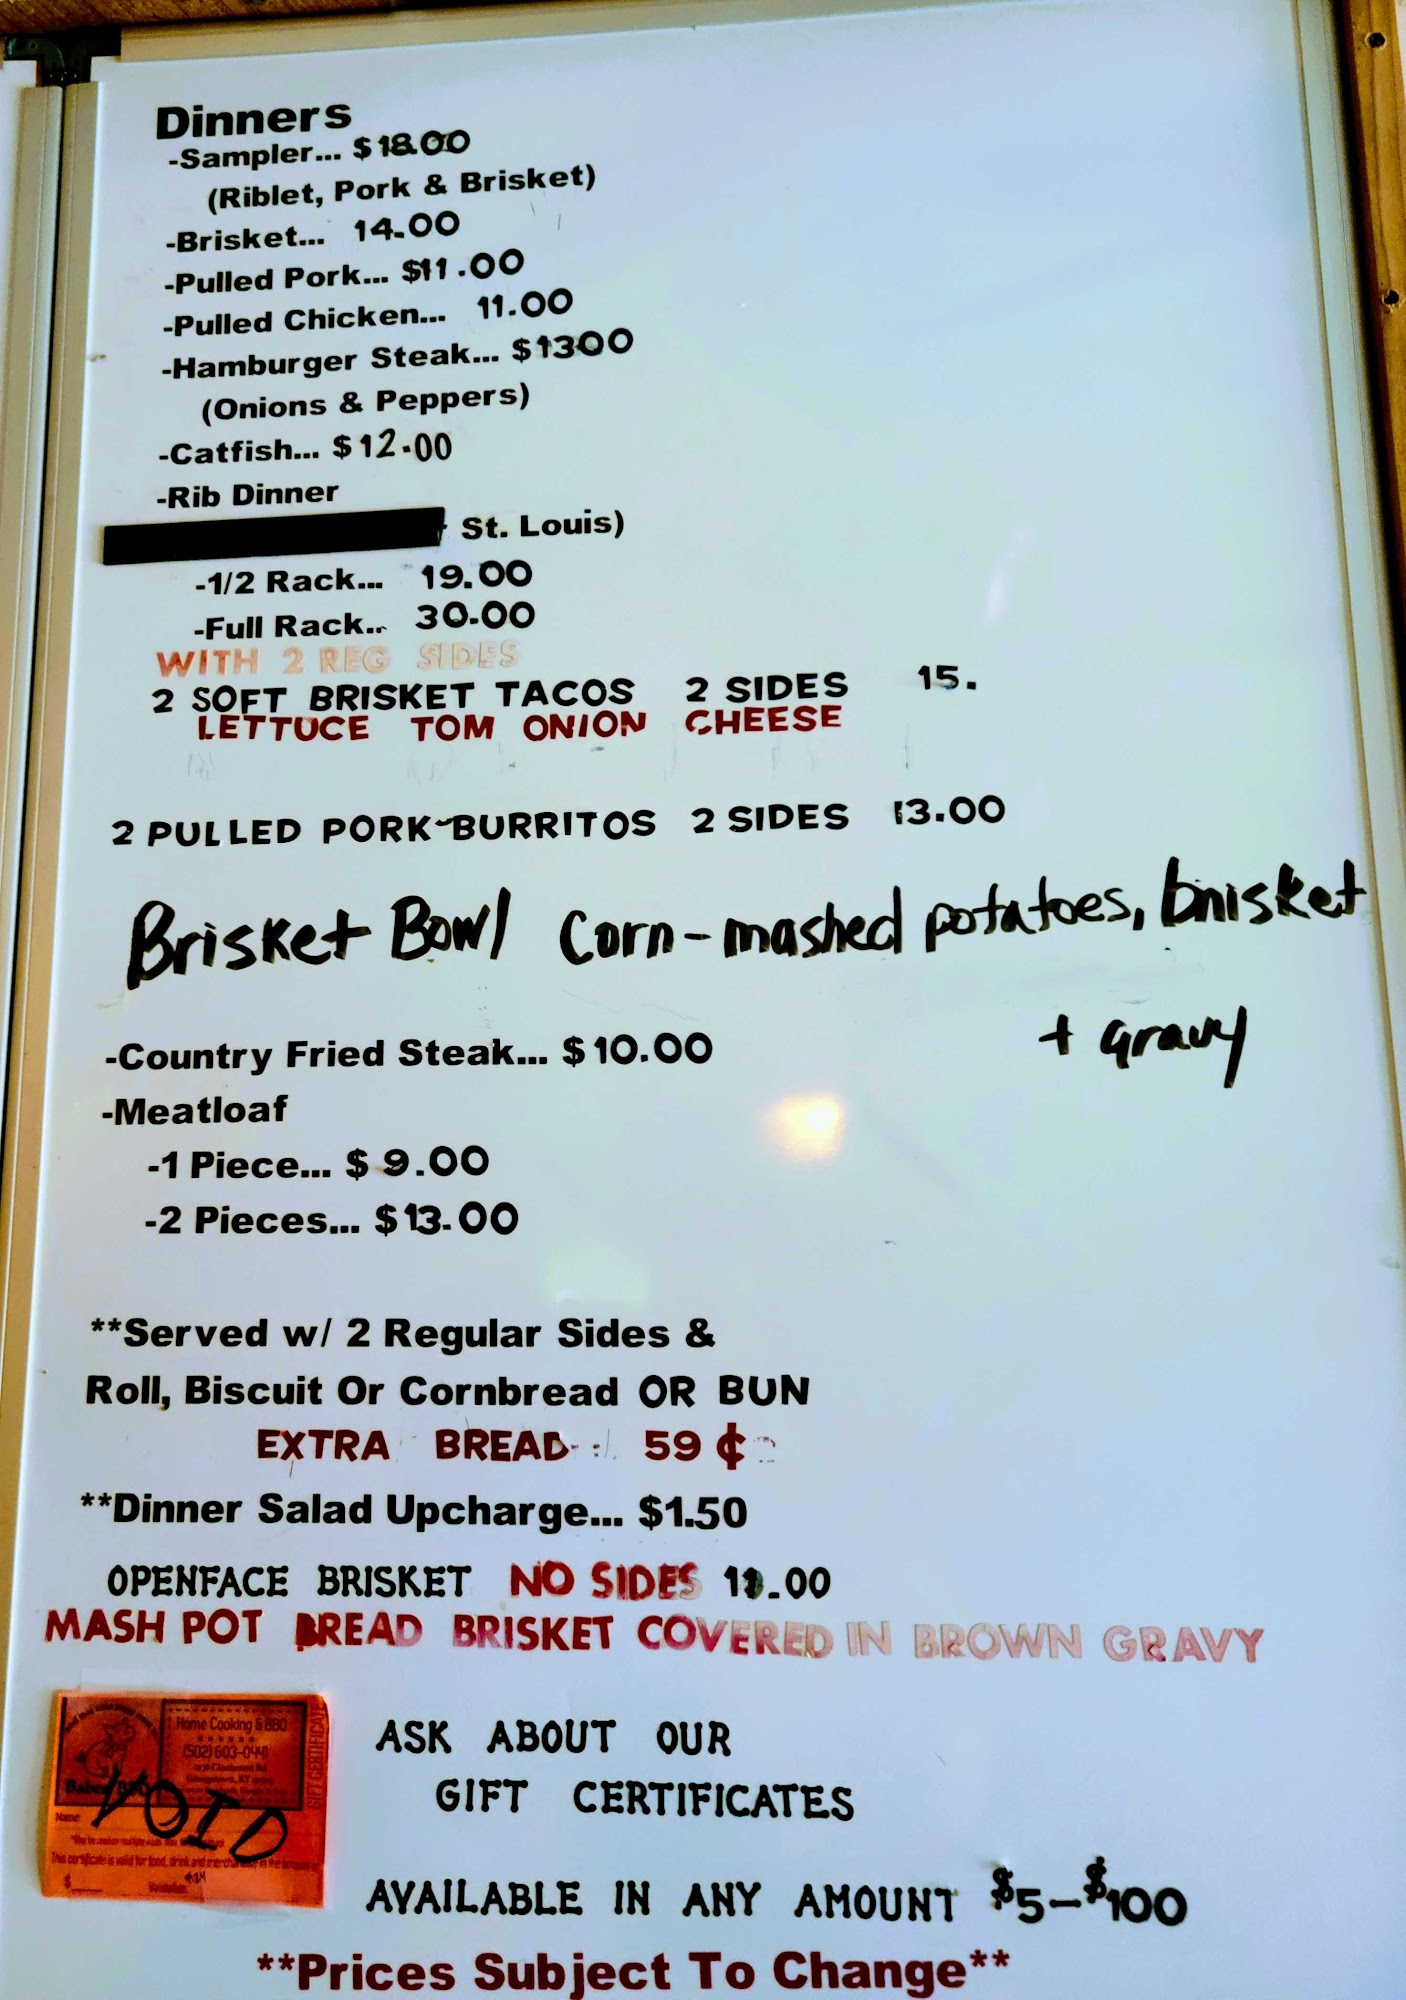 Dinners
-Sampler... $18.00
(Riblet, Pork & Brisket)
-Brisket... 14.00
-Pulled Pork... $11.00
-Pulled Chicken... 11.00
-Hamburger Steak... $1300
(Onions & Peppers)
-Catfish... $12.00
-Rib Dinner
St. Louis)
-1/2 Rack... 19.00
-Full Rack... 30.00
WITH 2 REG SIDES
2 SOFT BRISKET TACOS 2 SIDES 15.
LETTUCE TOM ONION CHEESE
2 PULLED PORK BURRITOS 2 SIDES 13.00
Brisket Bowl Corn-mashed potatoes, brisket
+ Gravy
-Country Fried Steak... $10.00
-Meatloaf
-1 Piece... $9.00
-2 Pieces... $13.00
**Served w/ 2 Regular Sides &
Roll, Biscuit Or Cornbread OR BUN
EXTRA BREAD 59¢
**Dinner Salad Upcharge... $1.50
OPENFACE BRISKET NO SIDES
MASH POT BREAD BRISKET COVERED IN BROWN GRAVY
Home Cooking & BBQ
(502) 603-0441
VOID
Name
This certificate is valid for food, drink and
$
GIFT CERTIFICATE
ASK ABOUT OUR
GIFT CERTIFICATES
AVAILABLE IN ANY AMOUNT $5-$100
**Prices Subject To Change**